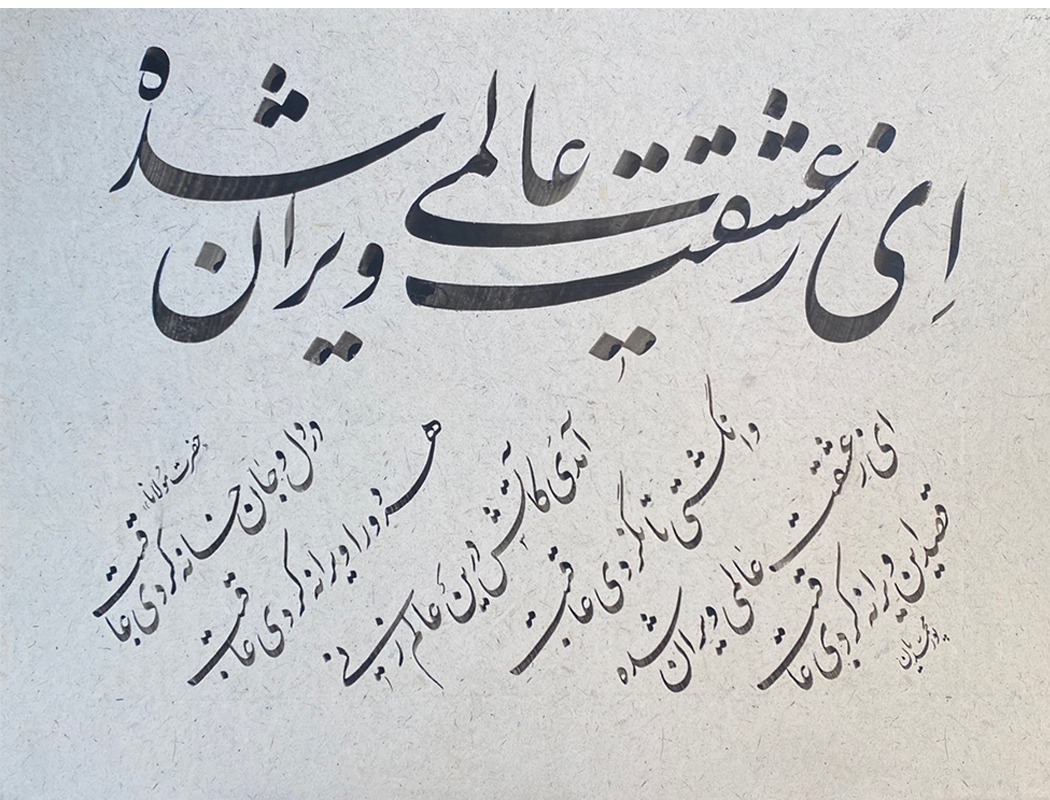 ای ز عشقت عالمی ویران شده
حضرت مولانا
در دل و جان خانه کردی عاقبت
هر دو را ویرانه کردی عاقبت
آمدی کاتش درین عالم زنی
وانگشتی تا نکردی عاقبت
ای ز عشقت عالمی ویران شده
قصد این ویرانه کردی عاقبت